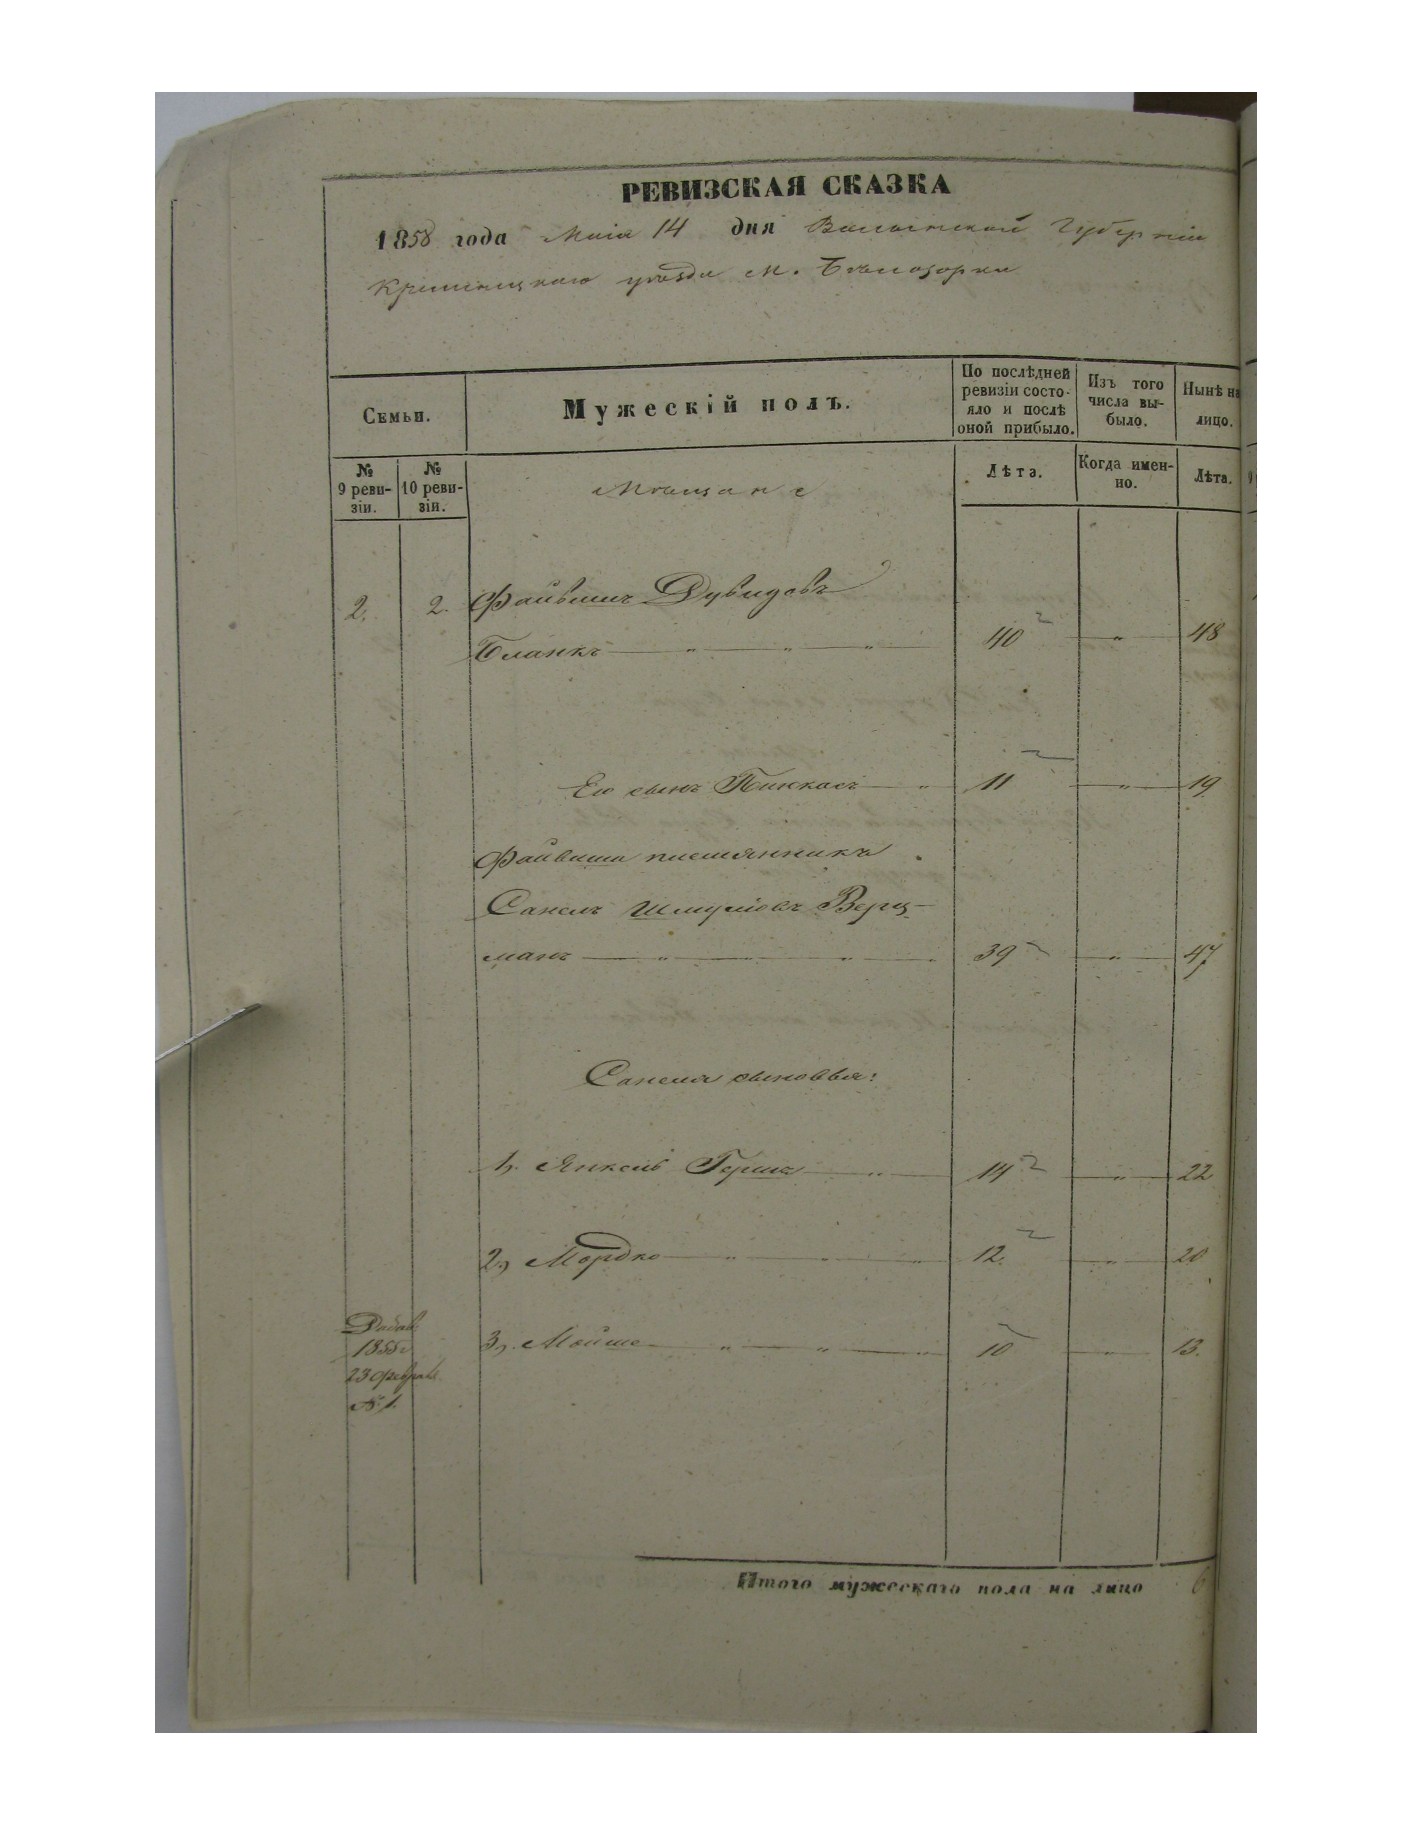 РЕВИЗСКАЯ СКАЗКА
1858 года Маія 14 дня Волынской Губерніи
Кременецкаго уѣзда м. Бѣлозорки
Семьи.
Мужескій полъ.
По послѣдней ревизіи состояло и послѣ оной прибыло.
Изъ того числа выбыло.
Нынѣ на лицо.
№ 9 ревизіи.
№ 10 ревизіи.
Мѣщане
Лѣта.
Когда именно.
Лѣта.
2. 2. Файвишъ Дувидовъ
Бланкъ — " — " — " — 40 — " — 48
Его сынъ Пинкасъ — " 11 — " — 19
Файвиша племянникъ
Санель Шмулiовъ Верц-
манъ — " — " — " — " 39 — " — 47
Санеля сыновья:
1, Янкель Гершъ — " — 14 — " — 22
2, Мордко — " — " — " 12. — " — 20
3, Мойше — " — " — " 10 — " — 13.
Добав.
1855 г
23 феврал.
№ 1.
Итого мужескаго пола на лицо 6